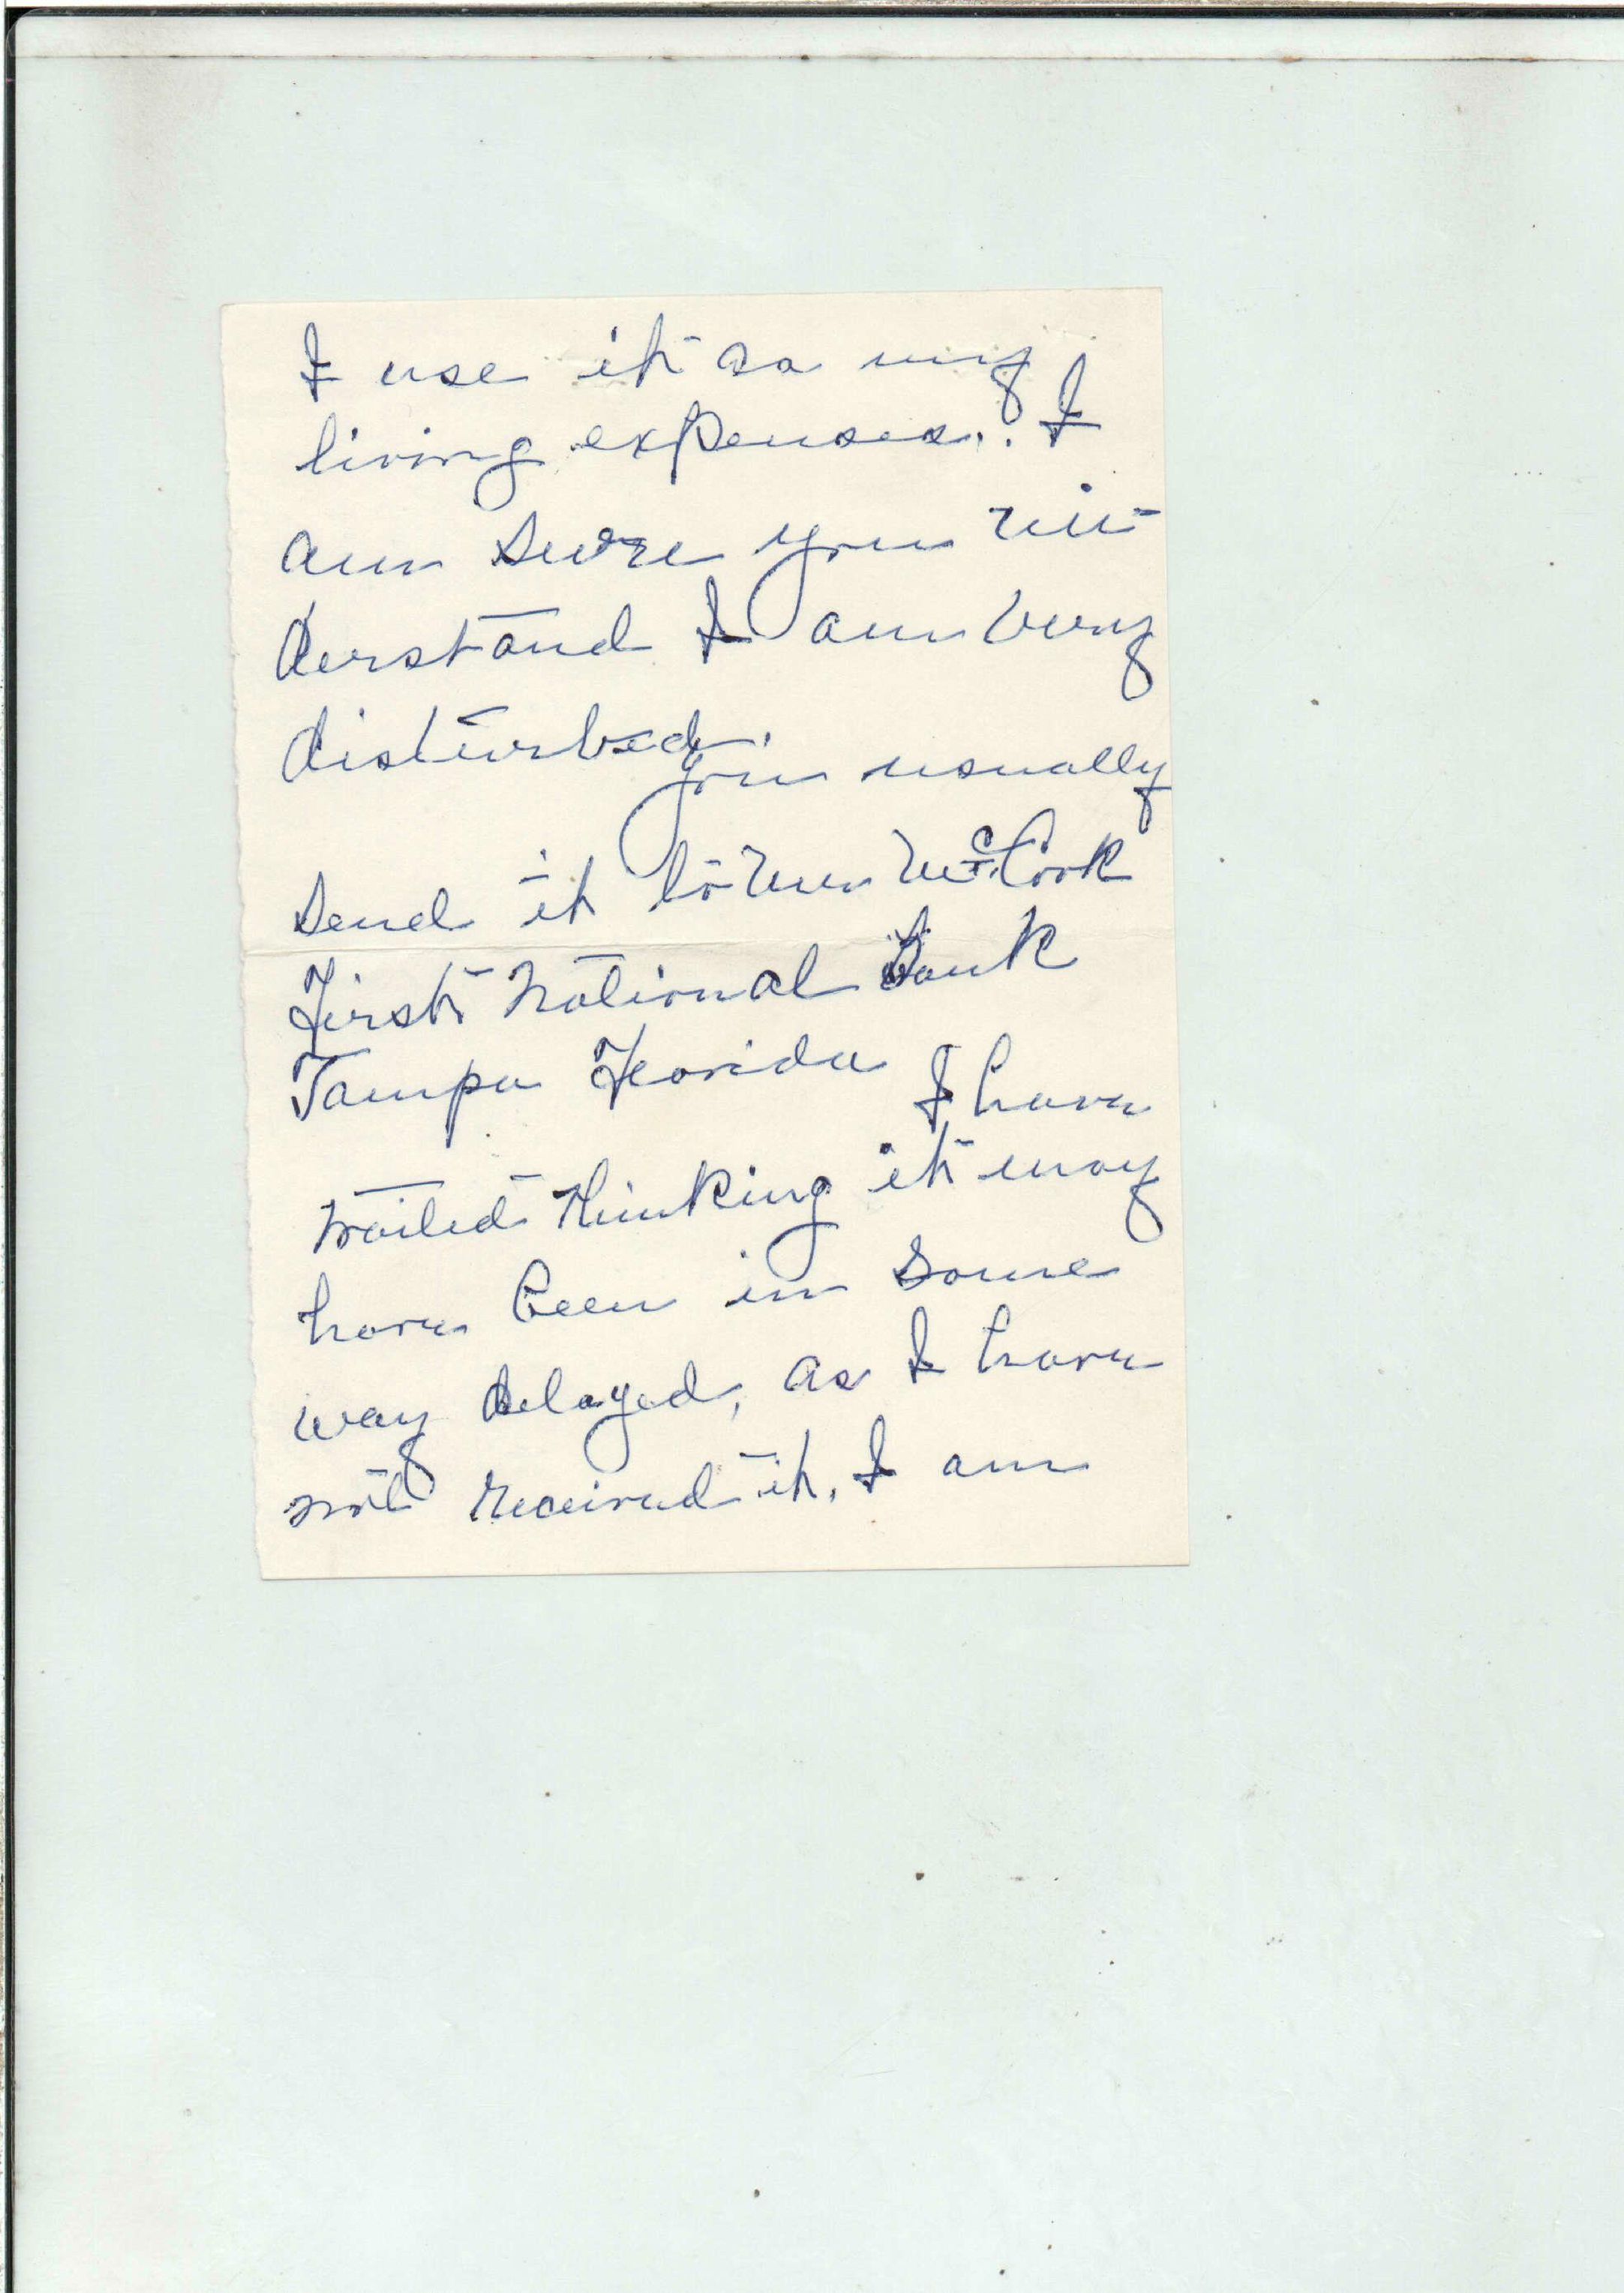 I use it as my
living expenses. I
am sure you un-
derstand I am very
disturbed.
you usually
send it to
First National Bank
Tampa Florida
I have
waited thinking it may
have been in some
way delayed, as I have
not received it. I am